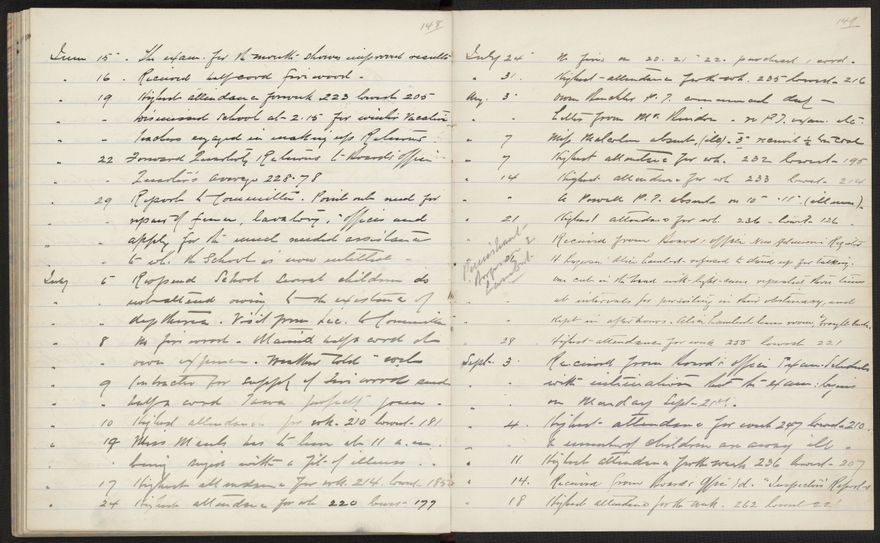 148
June 15 . The exam. for the month shows improved results
" 16 . Received half cord fire wood .
" 19 Highest attendance for week 223 lowest 205
" Dismissed School at 2.15 for winter vacation
" Teachers engaged in making up Returns
" 22 Forward Quarterly Returns to Board's office
Quarter's average 228.78
" 29 Report to Committee. Point out need for
" repair of fence, lavatory, offices and
" apply for the much needed assistance
" to wh. the School is now entitled .
July 6 Reopened School several children do
" not attend owing to the existence of
" diphtheria . Visit from Sec. to Committee
" 8 No fire wood . Obtained half a cord at
" own expense . Weather cold
" 9 Contractor for supply of fire wood sends
" half a cord
" 10 Highest attendance for wk. 210 lowest 181
" Miss has to leave at 11 a.m.
" being seized with a fit of illness . .
" 17 Highest attendance for wk 214. lowest 185
" 24 Highest attendance for wk 220 lowest 177
149
July 24 No fire on 20. 21 22. purchased 1 cord .
" 31. Highest attendance for wk. 235 lowest 216
Aug. 3 P.T. commenced duty
" " Letter from Mr. P.T. exam. etc.
" 7 Miss Malcolm absent (ill)
" 7 Highest attendance for wk. 232 lowest 195
" 14 Highest attendance for wk 233 lowest 214
" " A Powell P.T. absent on 10 11 (ill)
" 21 Highest attendance for wk 236 . lowest 126
" Received from Board's office New Admission Register
Punishment
August 26
Lambert
" Alice Lambert refused to stand up for talking.
" one cut on the hand with light cane repeated three times
" at intervals for persisting in this obstinacy, and
" kept in after hours. Alice Lambert
" 28 Highest attendance for week 255 lowest 221
Sept. 3. Received from Board's office Exam. Schedules
" " with intimation that the exam. begins
" on Monday Sept. 21st.
" 4. Highest attendance for week 247 lowest 210.
" A number of children are away ill .
" 11 Highest attendance for the week 236 lowest 207
" 14. Received from Board's Office "Inspector's Report"
" 18 Highest attendance for the week . 262 lowest 221